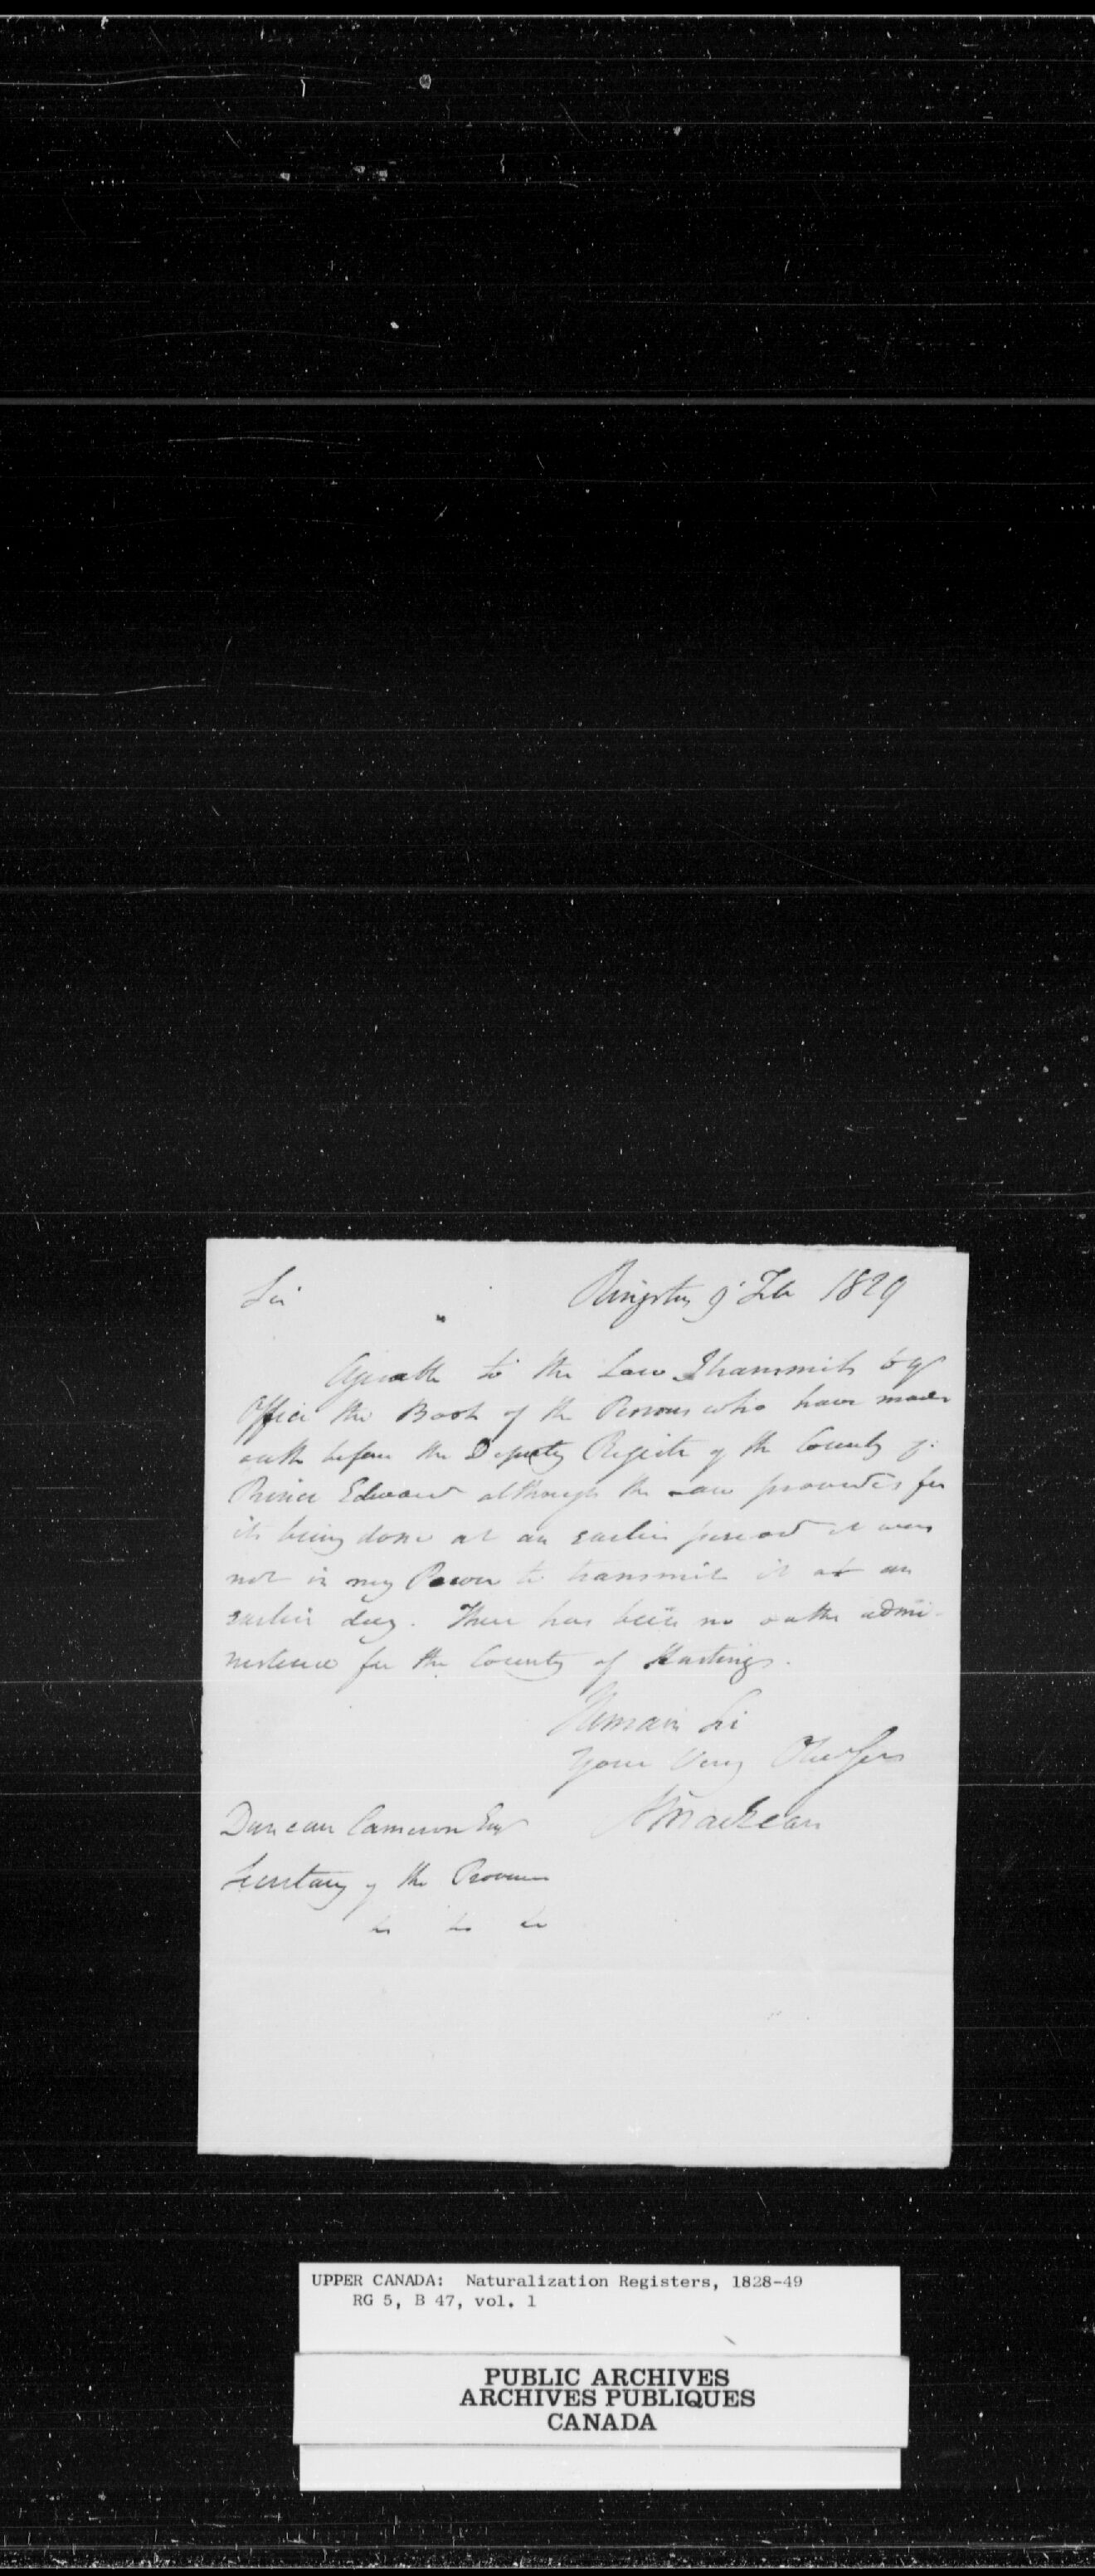 Sir
Kingston 9 Feb 1829
Agreeable to the Law I transmit to yr
Office the Book of the Persons who have made
oath before the Deputy Register of the County of
Prince Edward although the Law provides for
its being done at an earlier period it was
not in my Power to transmit it at an
earlier day. There has been no oaths admi-
nistered for the County of Hastings.
I remain Sir
Your Very Obt Ser
Duncan Cameron Esqr
Secretary of the Province
&c &c &c
UPPER CANADA: Naturalization Registers, 1828-49
RG 5, B 47, vol. 1
PUBLIC ARCHIVES
ARCHIVES PUBLIQUES
CANADA